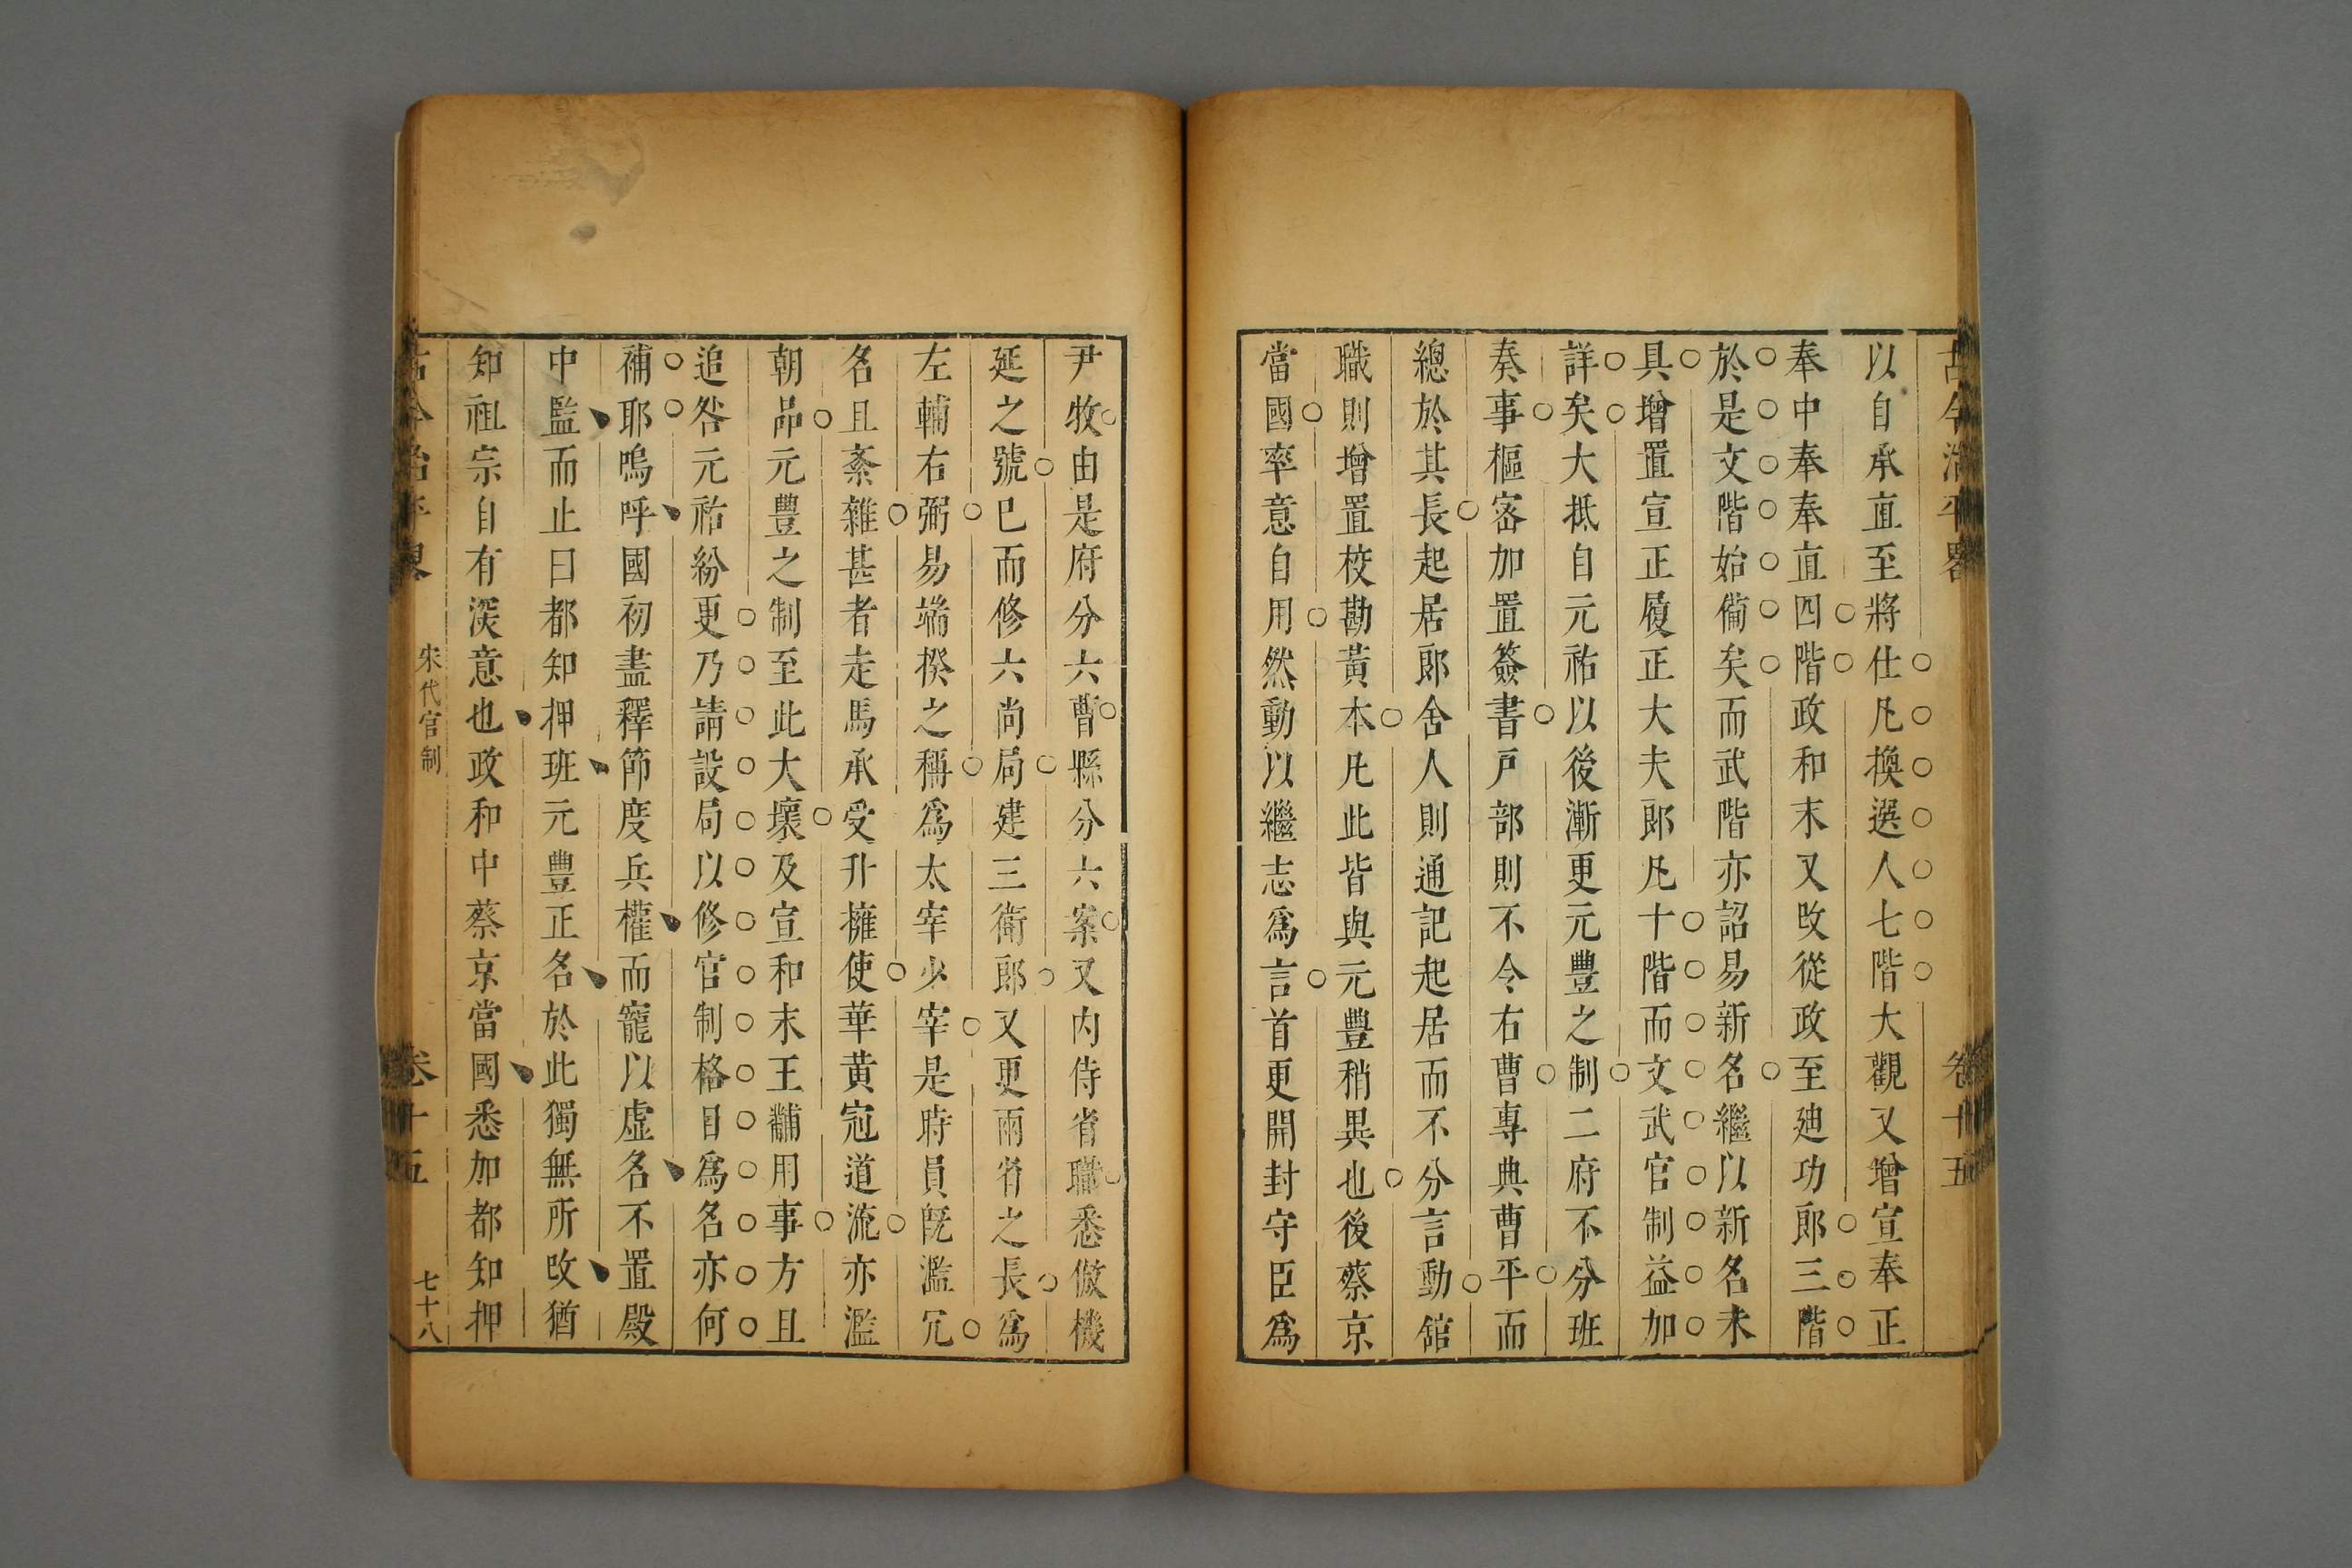 古今治平畧 卷十五
以自承直至將仕凡換選人七階大觀又增宣奉正
奉中奉奉直四階政和末又改從政至廸功郎三階
於是文階始備矣而武階亦詔易新名繼以新名未
具增置宣正履正大夫郎凡十階而文武官制益加
詳矣大抵自元祐以後漸更元豐之制二府不分班
奏事樞密加置簽書戸部則不令右曹專典曹平而
總於其長起居郎舍人則通記起居而不分言動舘
職則增置校勘黃本凡此皆與元豐稍異也後蔡京
當國率意自用然動以繼志爲言首更開封守臣爲
尹牧由是府分六曹縣分六案又內侍省職悉倣機
延之號已而修六尚局建三衛郎又更兩省之長爲
左輔右弼易端揆之稱爲太宰少宰是時員旣濫冗
名且紊雜甚者走馬承受升擁使華黃冠道流亦濫
朝品元豐之制至此大壞及宣和末王黼用事方且
追咎元祐紛更乃請設局以修官制格目爲名亦何
補耶嗚呼國初盡釋節度兵權而寵以虛名不置殿
中監而止曰都知押班元豐正名於此獨無所改猶
知祖宗自有深意也政和中蔡京當國悉加都知押
古今治平畧 宋代官制 卷十五 七十八